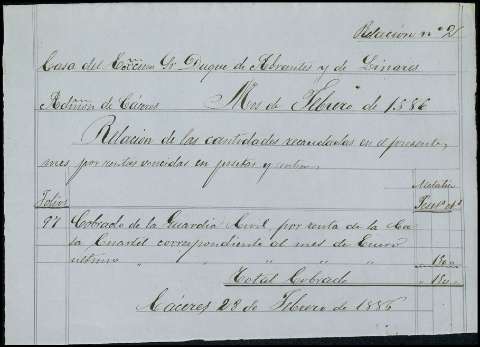 Relación nº 2
Casa del Excmo. Sr. Duque de Abrantes y de Linares
Admón. de Cáceres Mes de Febrero de 1886
Relación de las cantidades recaudadas en el presente
mes por rentas vencidas en pesetas y
Metálico
Folios Peset. ct.
97 Cobrado de la Guardia Civil por renta de la Ca-
sa Cuartel correspondiente al mes de Enero
último " " " " " 150 "
Total Cobrado " 150 "
Cáceres 28 de Febrero de 1886